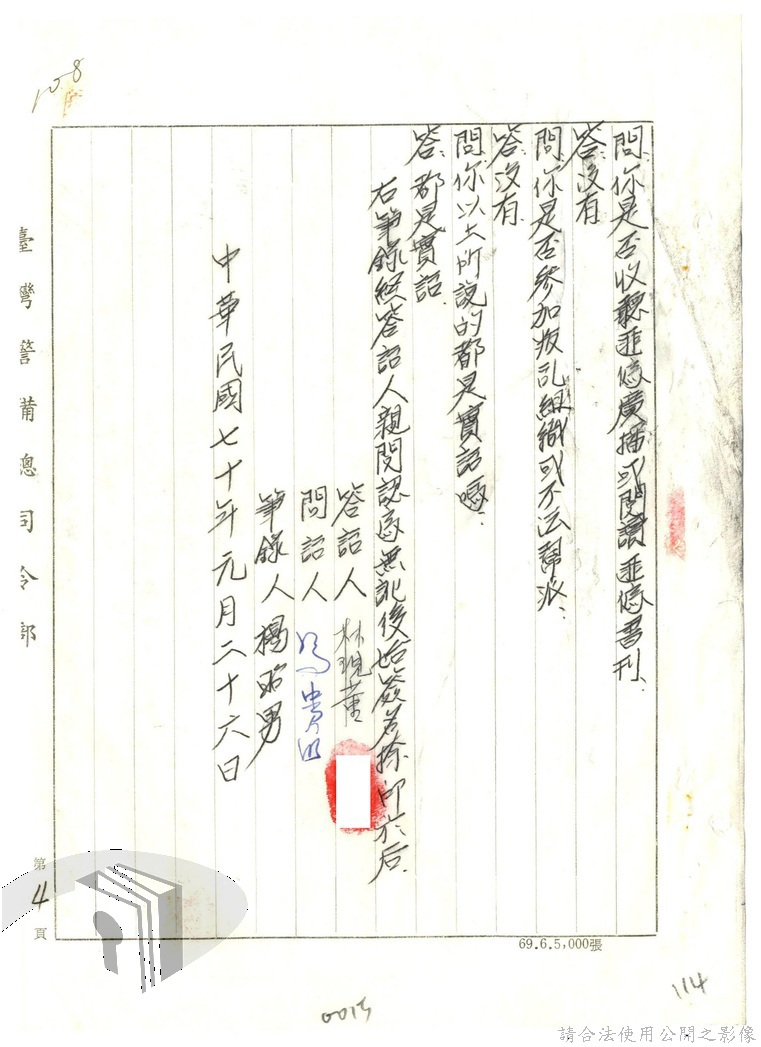 108
問:你是否收聽匪僞廣播或閱讀匪僞書刊.
答:沒有.
問:你是否參加叛乱組織或不法幫派.
答:沒有.
問:你以上所說的都是實話嗎.
答:都是實話.
右筆錄經答話人親閱認為無訛後始簽名捺印於后.
答話人 林現董
問話人 馮貴
筆錄人 楊昭男
中華民國七十年元月二十六日
臺灣警備總司令部
第4頁
69.6.5,000張
114
0015
請合法使用公開之影像